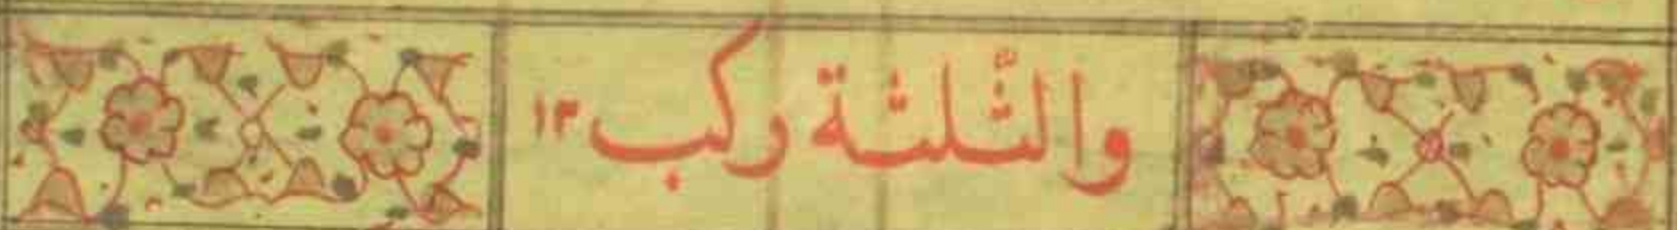 والثّلثة ركب ١٣